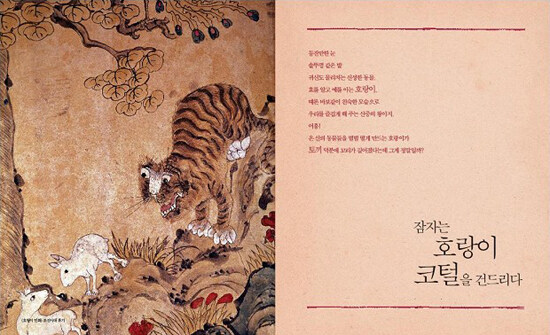 등잔만한 눈
솥뚜껑 같은 발
귀신도 물리치는 신성한 동물,
효를 알고 예를 아는 호랑이,
때론 바보같이 친숙한 모습으로
우리를 즐겁게 해 주는 산중의 왕이지.
어흥!
온 산의 동물들을 벌벌 떨게 만드는 호랑이가
토끼 덕분에 꼬리가 길어졌다는데 그게 정말일까?
잠자는
호랑이
코털을 건드리다